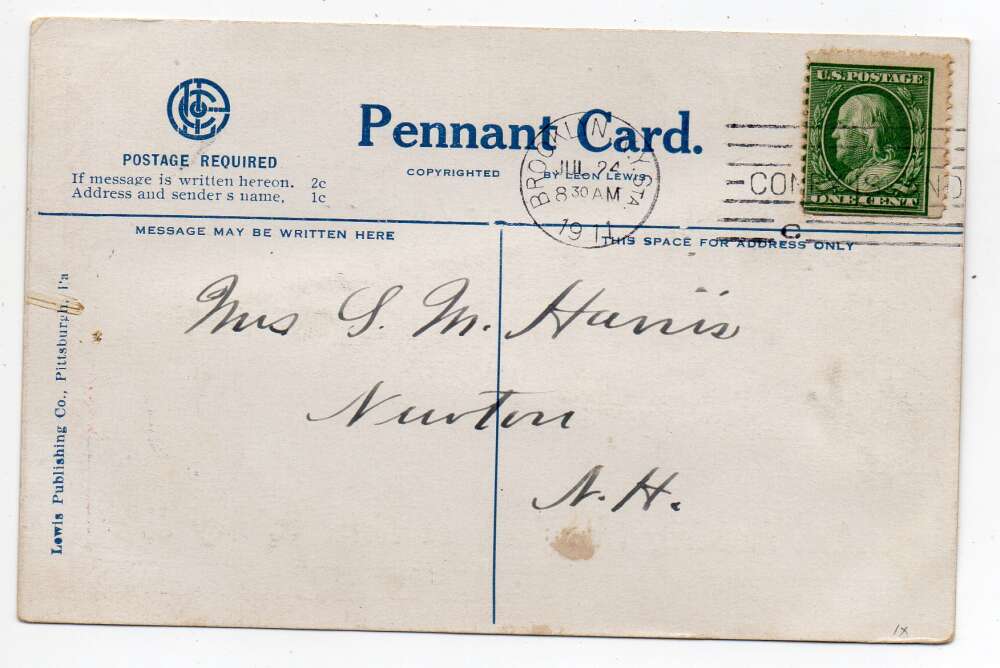 Pennant Card.
COPYRIGHTED BY LEON LEWIS
POSTAGE REQUIRED
If message is written hereon. 2c
Address and sender s name, 1c
BROOKLYN, N.Y. STA.
JUL 24
8 30 AM
1911
U.S. POSTAGE
ONE CENT
C.
MESSAGE MAY BE WRITTEN HERE
THIS SPACE FOR ADDRESS ONLY
Mrs S. M. Harris
Newton
N. H.
Lewis Publishing Co., Pittsburgh, Pa
1x